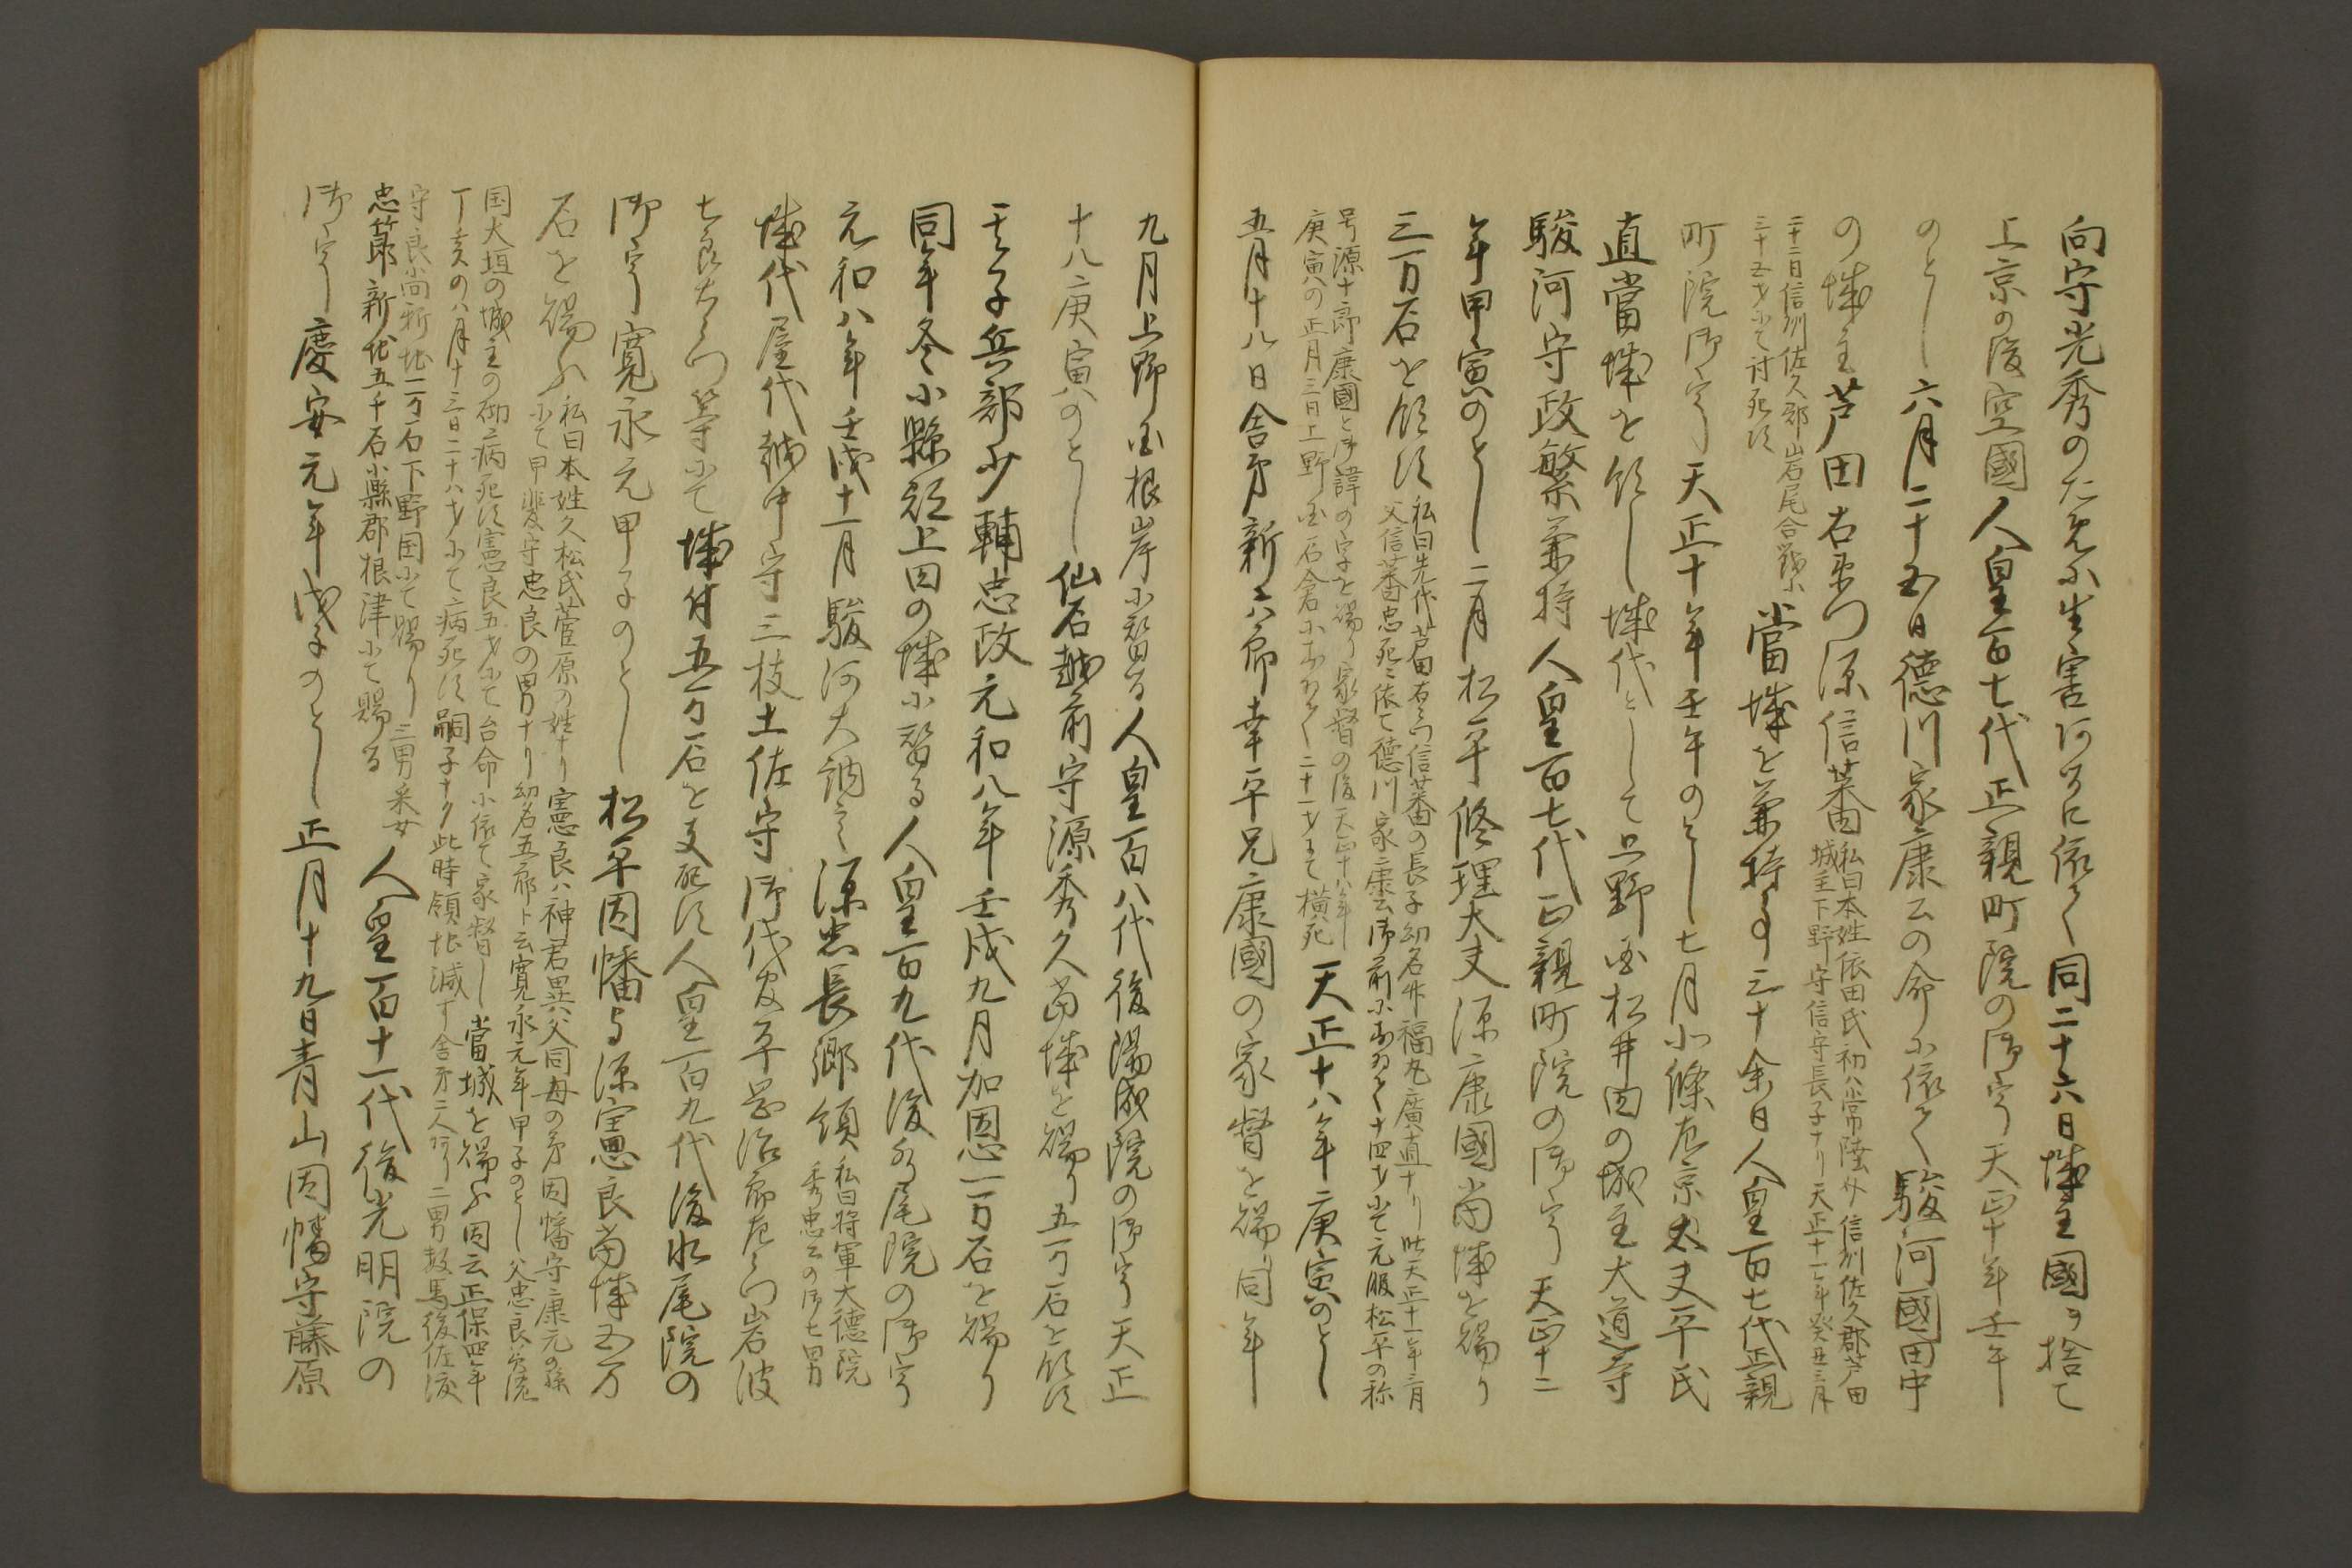 向守光秀のために生害あるに依て同二十六日城主國ヲ捨て
上京の後空國人皇百七代正親町院の御宇天正十年壬午
のとし六月二十五日德川家康公の命に依て駿河國田中
の城主芦田右衛門源信蕃因私曰本姓依田氏初ハ常陸介信刕佐久郡芦田
城主下野守信守長子ナリ天正十一年癸丑三月
二十二日信刕佐久郡岩尾合戦に
三十五才にて討死ス
當城を兼持事三十余日人皇百七代正親
町院御宇天正十年壬午のとし七月北條左京太夫平氏
直當城を領し城代として上野国松井田の城主大道寺
駿河守政繁兼持人皇百七代正親町院の御宇天正十二
年甲寅のとし二月松平修理大夫源康國當城を賜り
三万石を領ス私曰先代芦田右衛門信蕃の長子幼名竹福丸廣直ナリ此天正十一年三月
父信蕃忠死ニ依て德川家康公御前におゐて十四才にて元服松平の称
号源十郎康國と御諱の字を賜り家督の後天正十八年
庚寅の正月三日上野国石倉におゐて二十一才にて横死
天正十八年庚寅のとし
五月十八日舎弟新六郎幸平兄康國の家督を賜り同年
九月上野国根岸に替る人皇百八代後陽成院の御宇天正
十八庚寅のとし仙石越前守源秀久當城を賜り五万石を領ス
其子兵部少輔忠政元和八年壬戌九月加恩一万石を賜り
同年冬小縣郡上田の城に替る人皇百九代後水尾院の御宇
元和八年壬戌十一月駿河大納言源忠長卿領私曰将軍大德院
秀忠公の御七男
城代屋代越中守三枝土佐守御代官平岡治郎左衛門岩波
七良左衛門等にて城付五万石を支配ス人皇百九代後水尾院の
御宇寛永元甲子のとし松平因幡守源憲良當城五万
石を賜ふ私曰本姓久松氏菅原の姓ナリ憲良ハ神君異父同母の弟因幡守康元の孫
にて甲斐守忠良の男ナリ幼名五郎ト云寛永元年甲子のとし父忠良美濃
国大垣の城主の砌病死ス憲良五才にて台命に依て家督し當城を賜ふ因云正保四年
丁亥の八月十三日二十八才にて病死ス嗣子ナク此時領地減ず舎弟二人アリ二男数馬後佐渡
守良尚新地一万石下野国にて賜り三男采女
忠節新地五千石小縣郡根津にて賜る
人皇百十一代後光明院の
御宇慶安元年戊子のとし正月十九日青山因幡守藤原